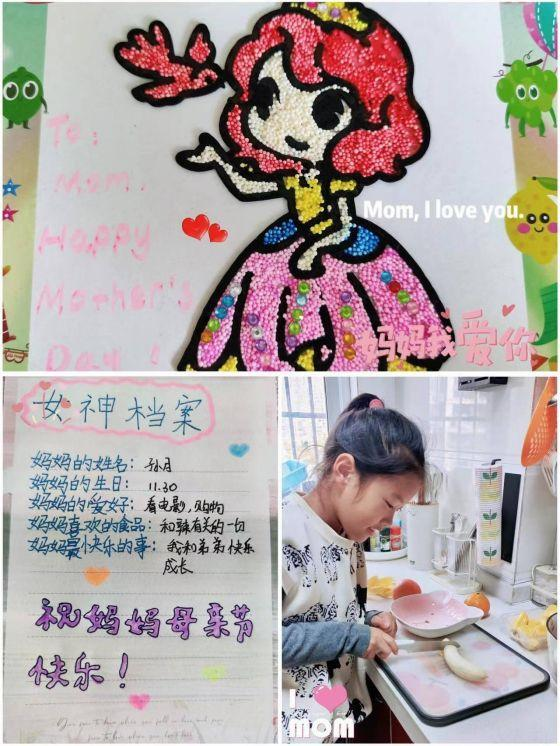 To:
Mom.
Happy
Mother's
Day!
Mom, I love you.
妈妈我爱你
女神档案
妈妈的姓名：孙月
妈妈的生日：11.30
妈妈的爱好：看电影，购物
妈妈喜欢的食品：和辣有关的一切
妈妈最快乐的事：我和弟弟快乐
成长
祝妈妈母亲节
快乐！
I
mom